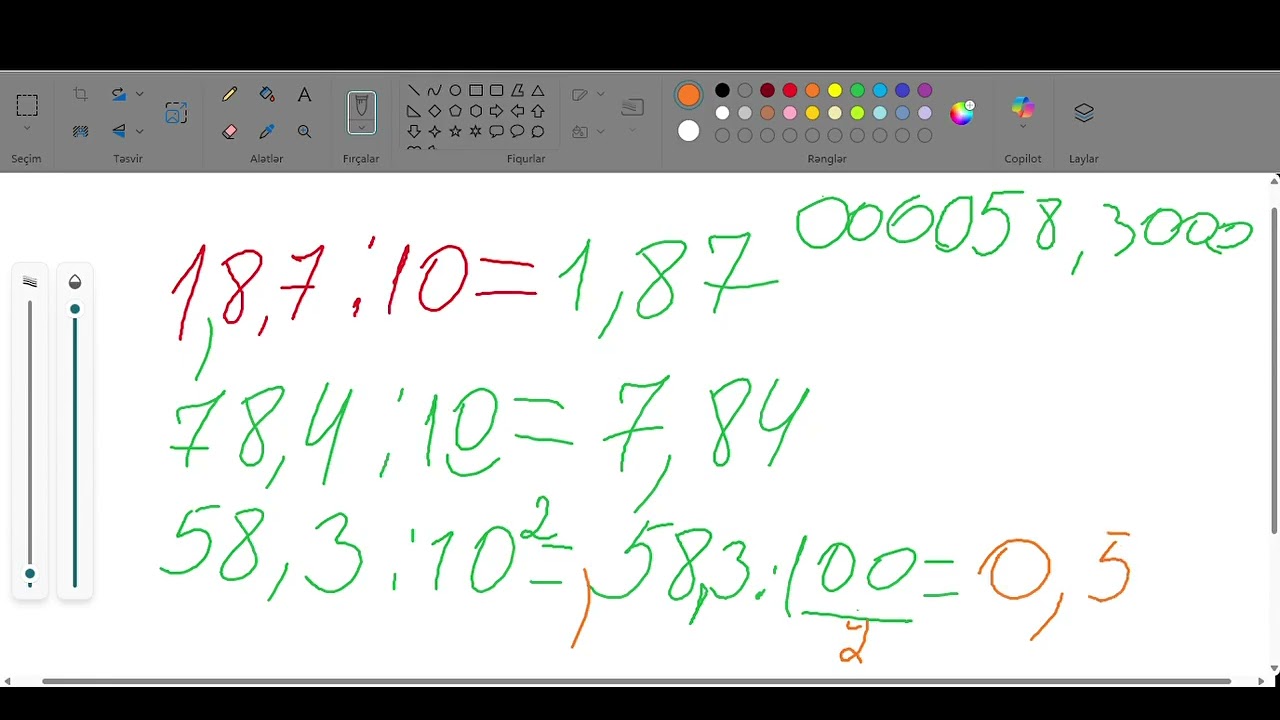 Seçim
Təsvir
Alətlər
Fırçalar
Fiqurlar
Rənglər
Copilot
Laylar
000058,3000
18,7:10=1,87
78,4:10=7,84
58,3:10²=58,3:100=0,5
2